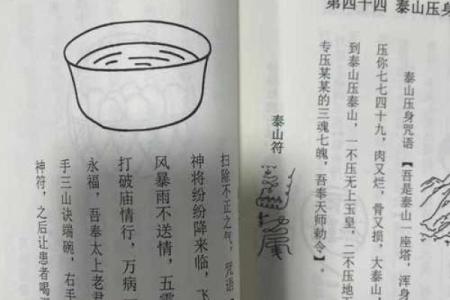 第四十四 泰山压身
泰山压身咒语【吾是泰山一座塔,
压你七七四十九,肉又烂,骨又损,大泰山
到泰山压泰山,一不压无上玉皇,二不压地
专压某某的三魂七魄,吾奉天师勅令】
泰山符
扫除不正之气,咒语
神将纷纷降来临,飞
风暴雨不送情,五雷
打破庙情行,万病
永福,吾奉太上老君
手三山诀端碗,右手
神符,之后让患者喝